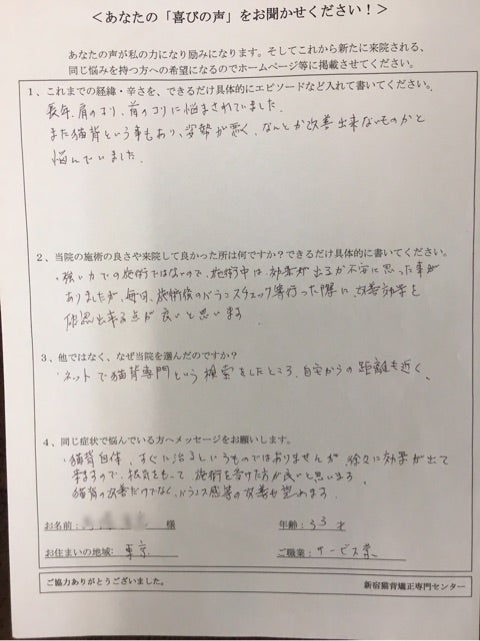 ＜あなたの「喜びの声」をお聞かせください！＞
あなたの声が私の力になり励みになります。そしてこれから新たに来院される、
同じ悩みを持つ方への希望になるのでホームページ等に掲載させてください。
1、これまでの経緯・辛さを、できるだけ具体的にエピソードなど入れて書いてください。
長年、肩のコリ、首のコリに悩まされていました。
また猫背という事もあり、姿勢が悪く、なんとか改善出来ないものかと
悩んでいました。
2、当院の施術の良さや来院して良かった所は何ですか？できるだけ具体的に書いてください。
・強い力での施術ではないので、施術中は、効果が出るか不安に思った事が
ありましたが、毎回、施術後のバランスチェック等行った際に、改善効果を
確認出来る点が良いと思います
3、他ではなく、なぜ当院を選んだのですか？
・ネットで猫背専門という検索をしたところ、自宅からの距離も近く、
4、同じ症状で悩んでいる方へメッセージをお願いします。
・猫背自体、すぐに治るというものではありませんが、徐々に効果が出て
来ますので、根気をもって、施術を受けた方が良いと思います。
猫背の改善だけでなく、バランス感等の改善も望めます。
お名前： 様 年齢：33才
お住まいの地域：東京 ご職業：サービス業
ご協力ありがとうございました。 新宿猫背矯正専門センター